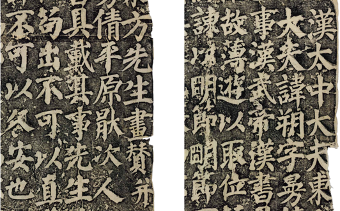 漢太中大夫東
大夫諱朔字曼
事漢武帝漢書
故薄遊以取位
諫以明節明節
方先生畫贊并
倩平原厭次人
具載其事先生
苟出不可以直
不可以久安也